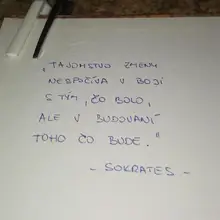 „TAJOMSTVO ZMENY
NESPOČÍVA V BOJI
S TÝM, ČO BOLO,
ALE V BUDOVANÍ
TOHO ČO BUDE."
- SOKRATES -